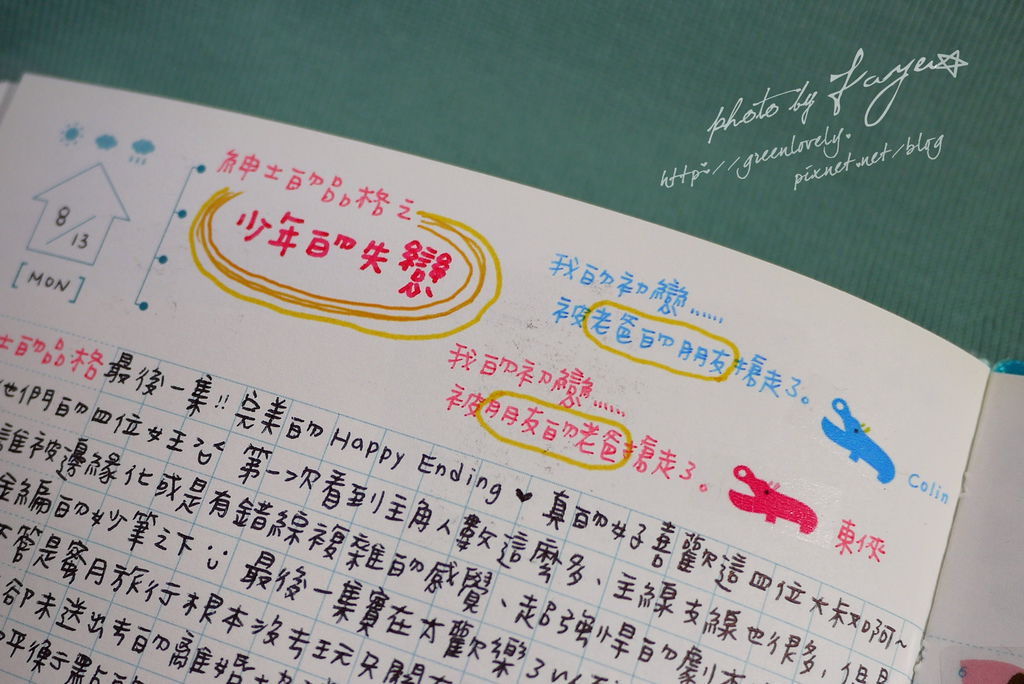 photo by Faye
http://greenlovely.
pixnet.net/blog
8/13
[MON]
紳士的品格之
少年的失戀
我的初戀......
被老爸的朋友搶走了。
Colin
我的初戀......
被朋友的老爸搶走了。
東俠
士的品格最後一集!! 完美的Happy Ending ♥ 真的好喜歡這四位大叔啊~
他們的四位女王 第一次看到主角人數這麼多、主線支線也很多,但
誰被邊緣化或是有錯綜複雜的感覺、超強悍的劇本
金編的妙筆之下 最後一集實在太歡樂了
不管是蜜月旅行根本沒去玩只關
卻未送出去的離婚
平衡